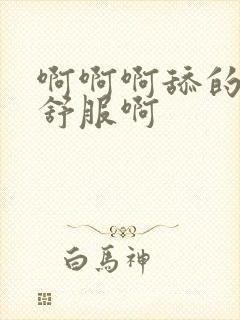 啊啊啊舔的
舒服啊
白馬神